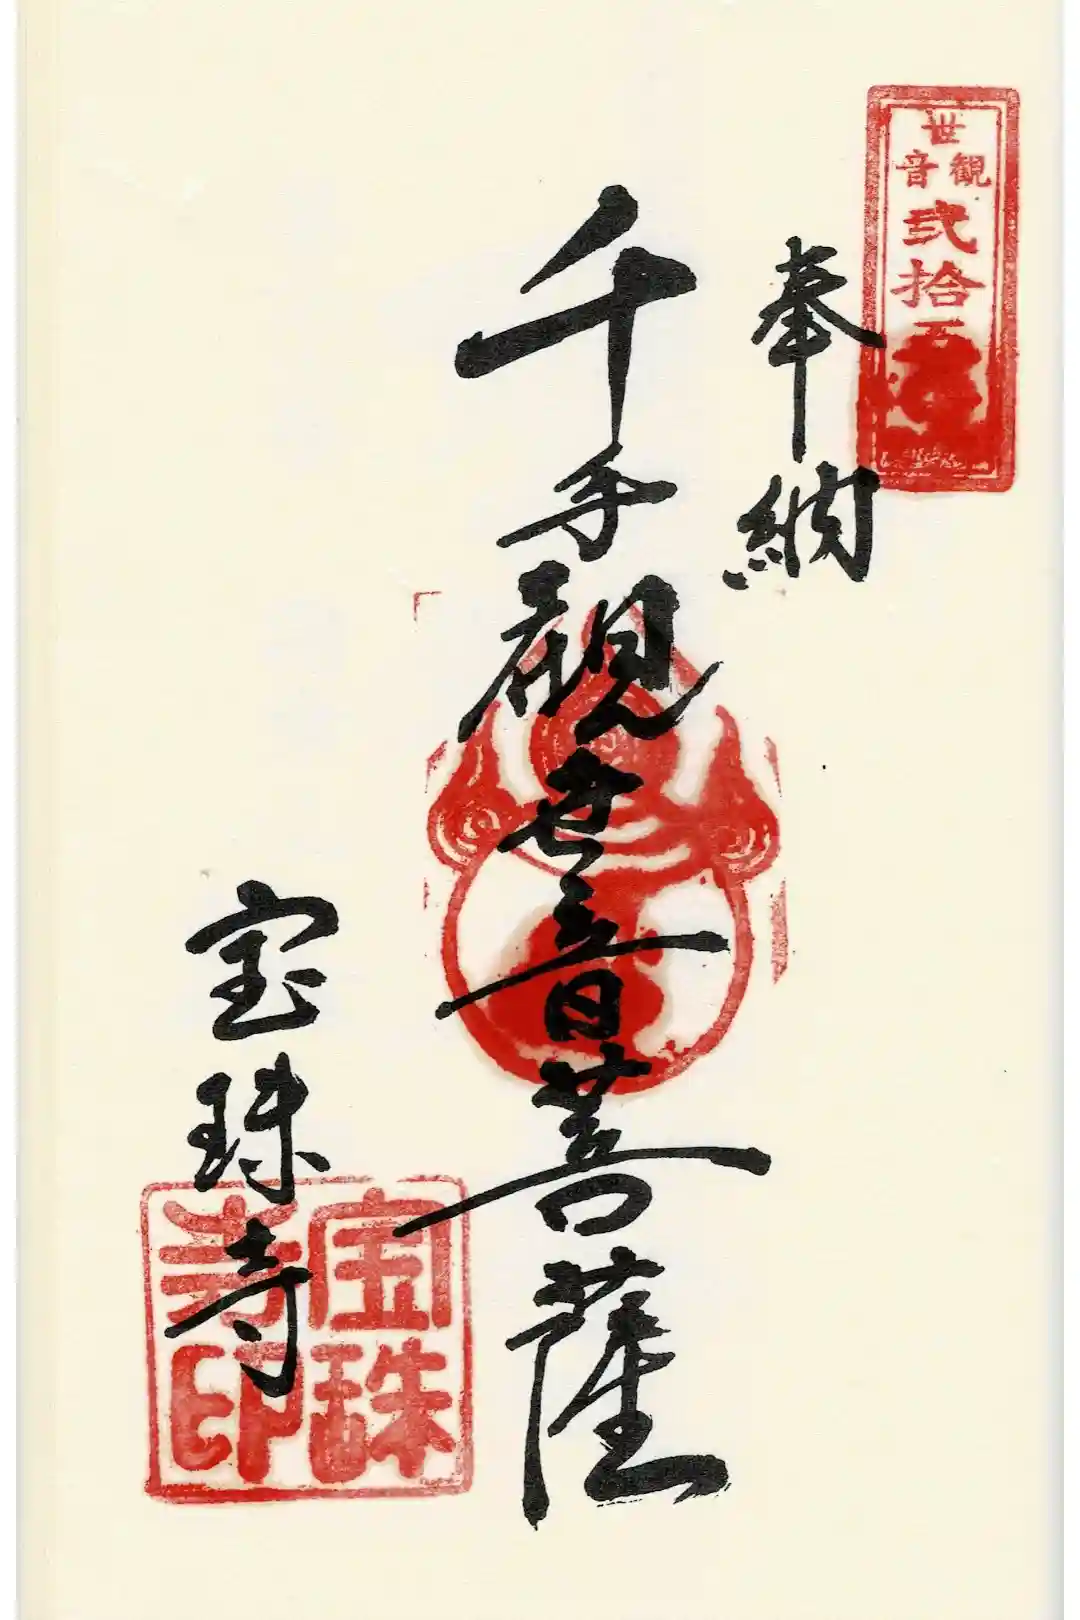 世
観音
弐拾五
奉納
千手観世音菩薩
宝珠寺
宝珠
寺印